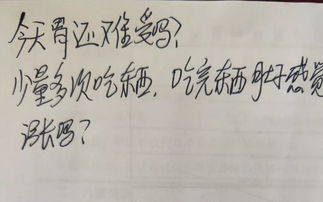 今天胃还难受吗?
少量多次吃东西,吃完东西肚子感觉
涨吗?